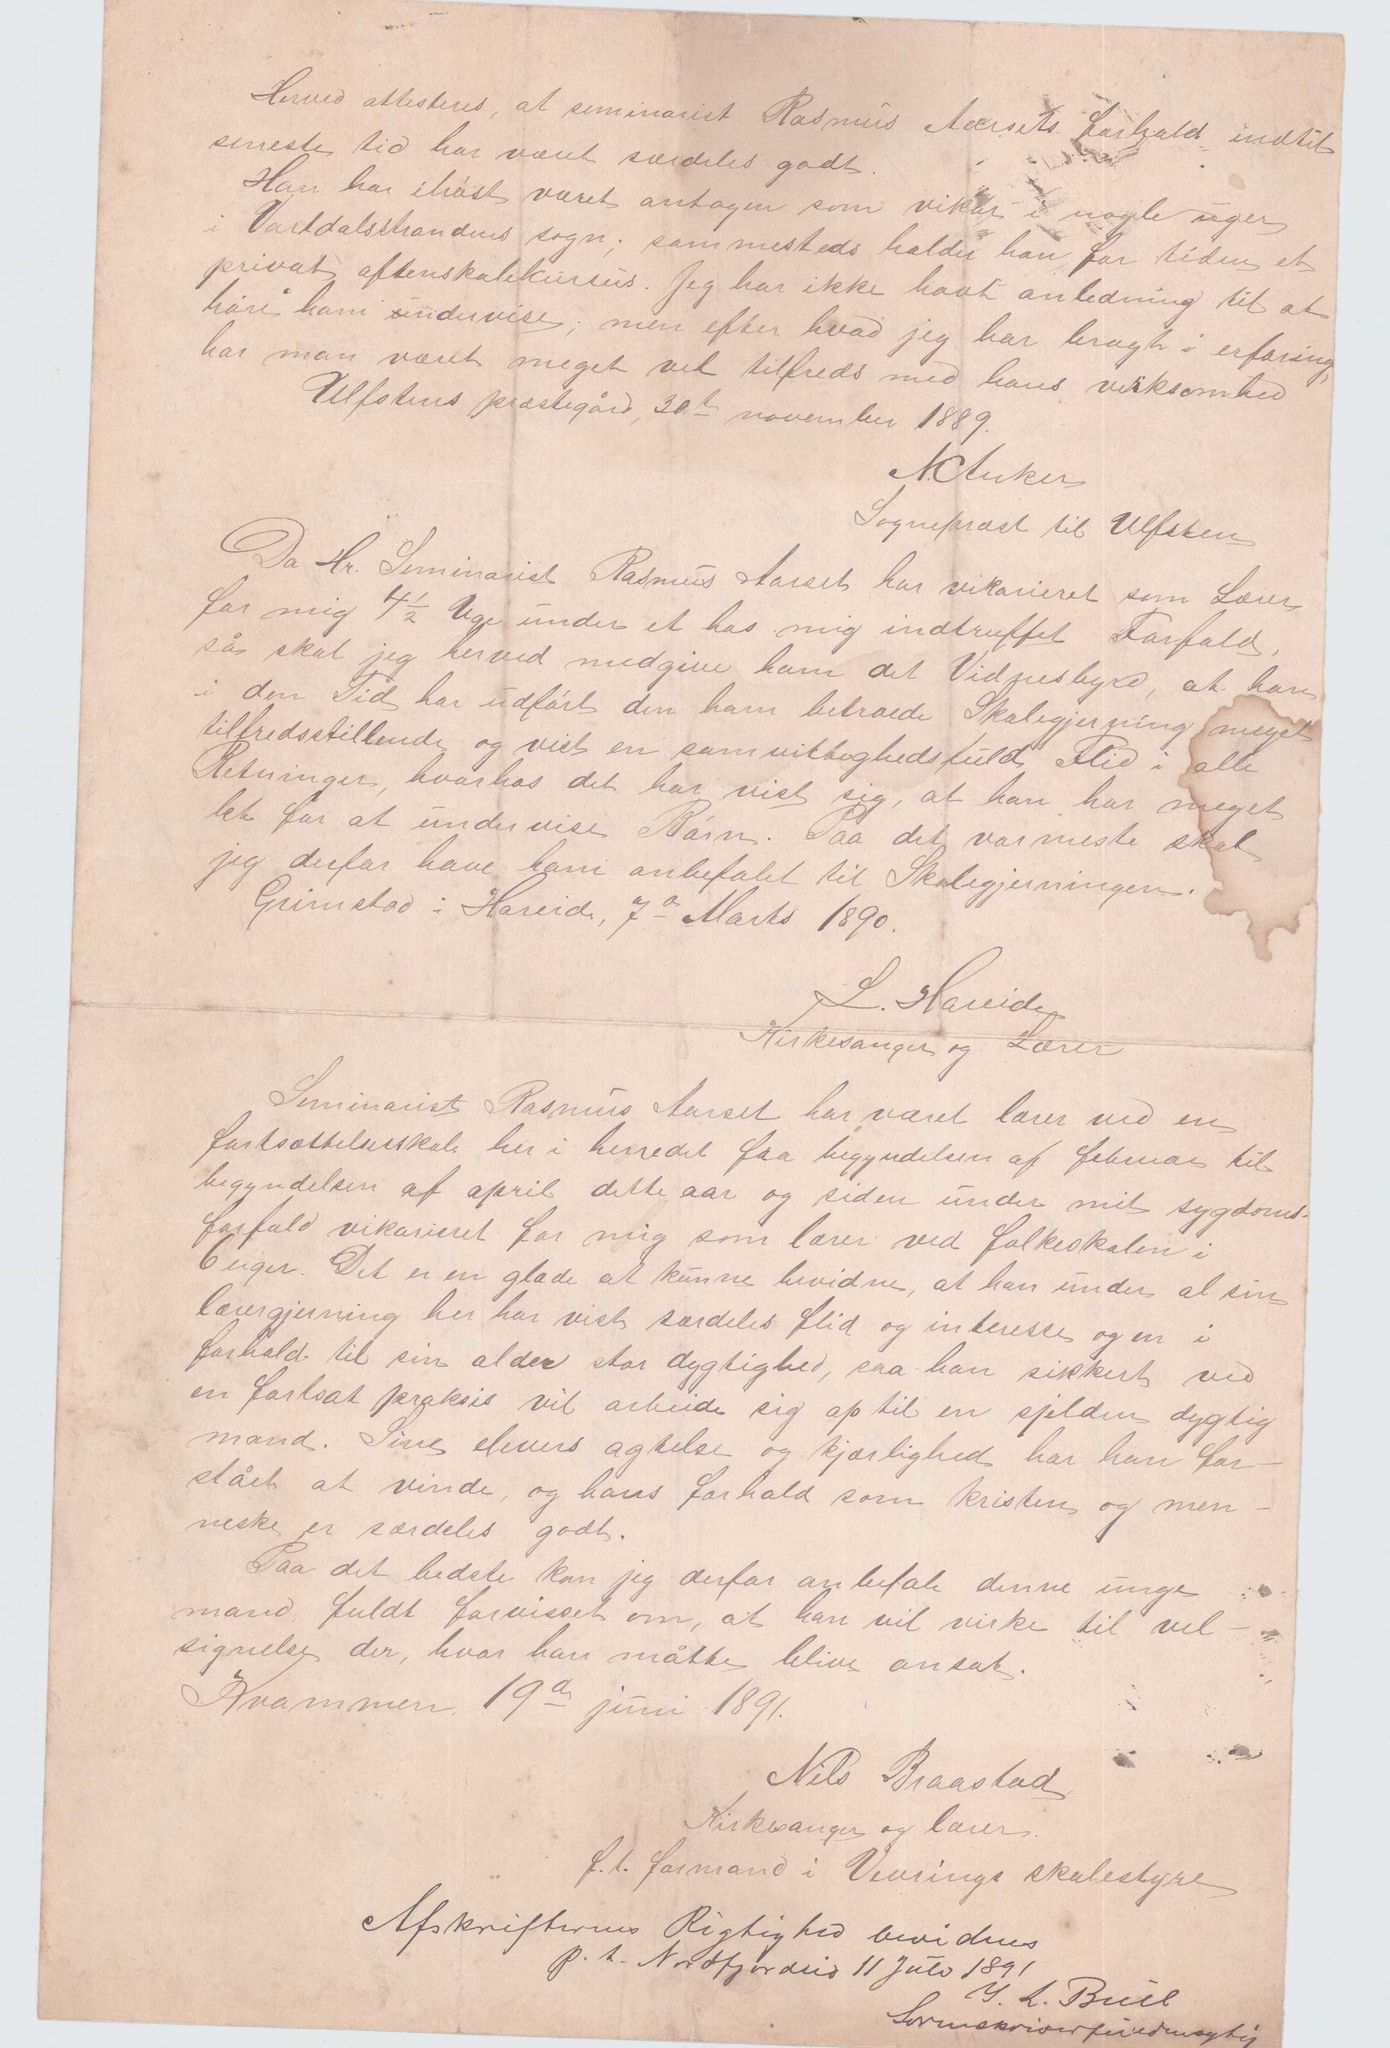 Herved attesteres, at seminarist Rasmus Aarsets forhold indtil
seneste tid har været særdeles godt.
Han har ihøst været antagen som vikar i nogle uger
i Vartdalsstrandens sogn; sammesteds holder han for tiden et
privat aftenskolekursus. Jeg har ikke havt anledning til at
høre ham undervise; men efter hvad jeg har bragt i erfaring,
har man været meget vel tilfreds med hans virksomhed
Ulfstens præstegård, 30te november 1889.
N. Anker
Sognepræst til Ulfsten
Da Hr. Seminarist Rasmus Aarset har vikarieret som Lærer
for mig 4 1/2 Uge under et hos mig indtruffet Forfald,
så skal jeg herved medgive ham det Vidnesbyrd, at han
i den Tid har udført den ham betroede Skolegjerning meget
tilfredsstillende og vist en samvittighedsfuld Flid i alle
Retninger, hvorhos det har vist sig, at han har meget
let for at undervise Børn. Paa det varmeste skal
jeg derfor have ham anbefalet til Skolegjerningen.
Grimstad i Hareide, 7de Marts 1890.
L. Hareide
Kirkesanger og Lærer
Seminarist Rasmus Aarset har været lærer ved en
fortsættelsesskole her i herredet fra begyndelsen af februar til
begyndelsen af april dette aar og siden under mit sygdoms-
forfald vikarieret for mig som lærer ved folkeskolen i
6 uger. Det er en glæde at kunne bevidne, at han under al sin
lærergjerning her har vist særdeles flid og interesse og en i
forhold til sin alder stor dygtighed, saa han sikkert ved
en fortsat praksis vil arbeide sig op til en sjelden dygtig
mand. Sine elevers agtelse og kjærlighed har han for-
stået at vinde, og hans forhold som kristen og men-
neske er særdeles godt.
Paa det bedste kan jeg derfor anbefale denne unge
mand, fuldt forvisset om, at han vil virke til vel-
signelse der, hvor han måtte blive ansat.
Kvammen, 19de juni 1891.
Nils Braastad
Kirkesanger og lærer.
f. t. formand i Vevrings skolestyre
Afskrifternes Rigtighed bevidnes
p. t. Nordfjordeid 11 Juli 1891
Bull
Sorenskriverfuldmægtig